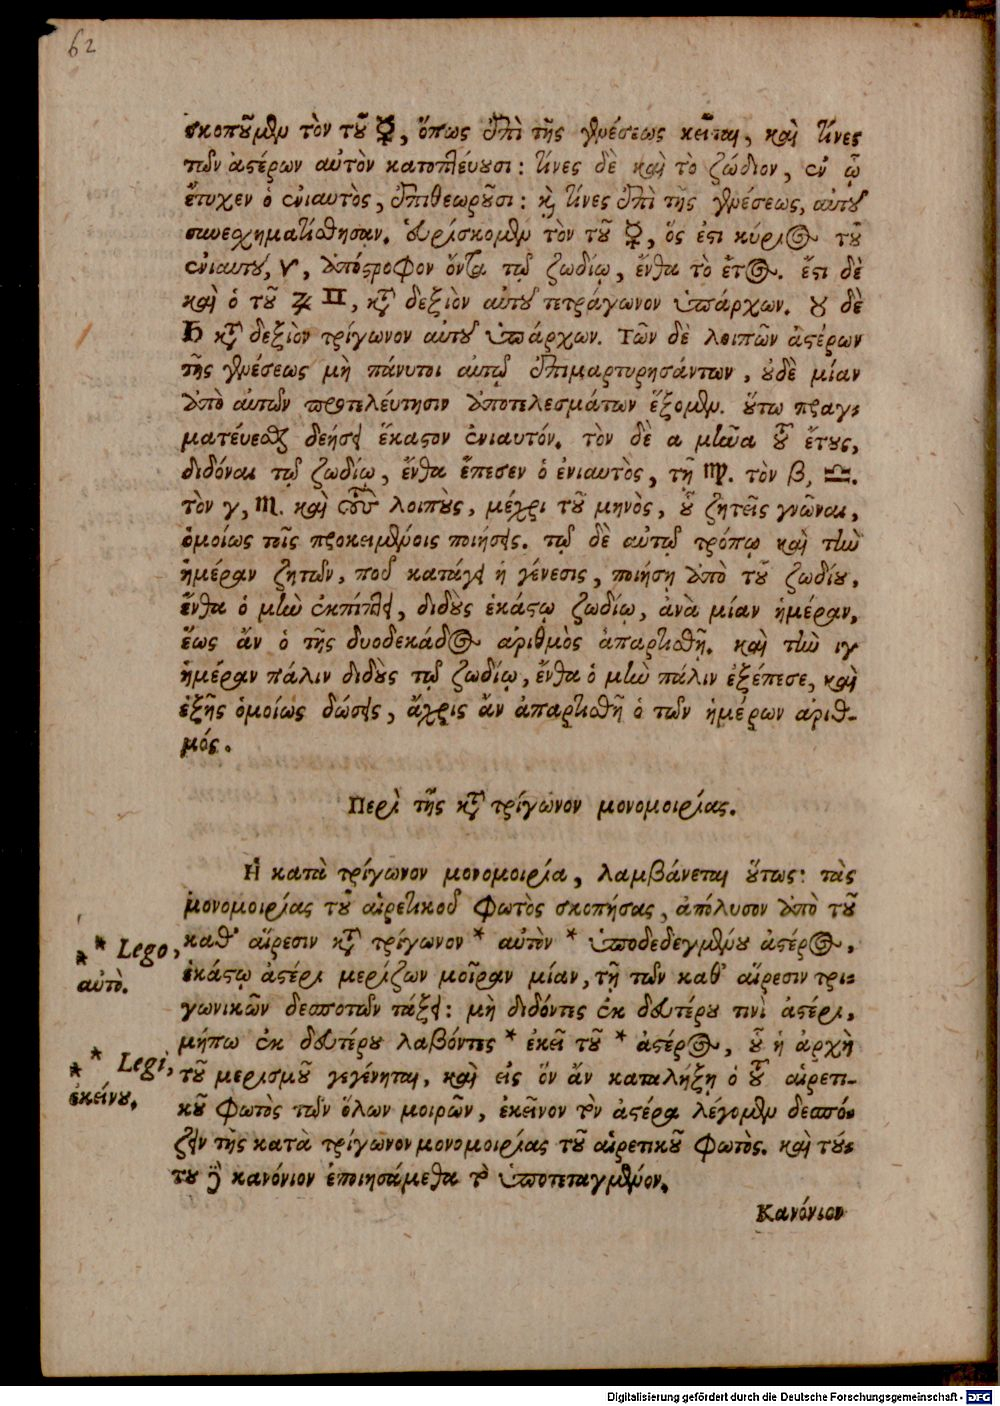 62
σκοποῦμεν τὸν τοῦ ☿, ὅπως ἐπὶ τῆς γενέσεως κεῖται, καὶ τίνες
τῶν ἀστέρων αὐτὸν κατοπτεύουσι: τίνες δὲ καὶ τὸ ζώδιον, ἐν ᾧ
ἔτυχεν ὁ ἐνιαυτὸς, ἐπιθεωροῦσι: καὶ τίνες ἐπὶ τῆς γενέσεως, αὐτοῦ
συνεσχηματίσθησαν. εὑρίσκομεν τὸν τοῦ ☿, ὅς ἐστι κύριος τοῦ
ἐνιαυτοῦ, ♈, ἀπόστροφον ὄντα τῷ ζωδίῳ, ἔνθα τὸ ἔτος. ἔστι δὲ
καὶ ὁ τοῦ ♃ ♊, κατὰ δεξιὸν αὐτοῦ τετράγωνον ὑπάρχων. ὁ δὲ
♄ κατὰ δεξιὸν τρίγωνον αὐτοῦ ὑπάρχων. Τῶν δὲ λοιπῶν ἀστέρων
τῆς γενέσεως μὴ πάνυτοι αὐτῷ ἐπιμαρτυρησάντων, οὐδὲ μίαν
ἀπὸ αὐτῶν προτελεύτησιν ἀποτελεσμάτων ἕξομεν. οὕτω πραγ-
ματεύεσθαι δεήσει ἕκαστον ἐνιαυτόν. τὸν δὲ α μῆνα τοῦ ἔτους,
διδόναι τῷ ζωδίῳ, ἔνθα ἔπεσεν ὁ ἐνιαυτὸς, τῇ ♍. τὸν β, ♎.
τὸν γ, ♏. καὶ τοὺς λοιποὺς, μέχρι τοῦ μηνὸς, οὗ ζητεῖς γνῶναι,
ὁμοίως τοῖς προκειμένοις ποιήσεις. τῷ δὲ αὐτῷ τρόπῳ καὶ τὴν
ἡμέραν ζητῶν, ποῦ κατάγει ἡ γένεσις, ποιήσῃ ἀπὸ τοῦ ζωδίου,
ἔνθα ὁ μὴν ἐκπίπτει, διδοὺς ἑκάστῳ ζωδίῳ, ἀνὰ μίαν ἡμέραν,
ἕως ἂν ὁ τῆς δυοδεκάδος ἀριθμὸς ἀπαρτισθῇ. καὶ τὴν ιγ
ἡμέραν πάλιν διδοὺς τῷ ζωδίῳ, ἔνθα ὁ μὴν πάλιν ἐξέπεσε, καὶ
ἑξῆς ὁμοίως δώσεις, ἄχρις ἂν ἀπαρτισθῇ ὁ τῶν ἡμερῶν ἀριθ-
μός.
Περὶ τῆς κατὰ τρίγωνον μονομοιρίας.
Ἡ κατὰ τρίγωνον μονομοιρία, λαμβάνεται οὕτως: τὰς
μονομοιρίας τοῦ αἱρετικοῦ φωτὸς σκοπήσας, ἀπόλυσον ἀπὸ τοῦ
καθ' αἵρεσιν κατὰ τρίγωνον * αὐτὸν * ὑποδεδεγμένου ἀστέρος,
ἑκάστῳ ἀστέρι μερίζων μοῖραν μίαν, τῇ τῶν καθ' αἵρεσιν τρι-
γωνικῶν δεσποτῶν τάξει: μὴ διδόντες ἐκ δευτέρου τινὶ ἀστέρι,
μήπω ἐκ δευτέρου λαβόντες * ἐκεῖ τοῦ * ἀστέρος, οὗ ἡ ἀρχὴ
τοῦ μερισμοῦ γεγένηται, καὶ εἰς ὃν ἂν καταλήξῃ ὁ τοῦ αἱρετι-
κοῦ φωτὸς τῶν ὅλων μοιρῶν, ἐκεῖνον τὸν ἀστέρα λέγομεν δεσπό-
ζειν τῆς κατὰ τρίγωνον μονομοιρίας τοῦ αἱρετικοῦ φωτὸς. καὶ τού-
του δὲ κανόνιον ἐποιησάμεθα τὸ ὑποτεταγμένον.
Κανόνιον
* * Lego,
αὐτὸ.
* * Legi,
ἐκείνου.
Digitalisierung gefördert durch die Deutsche Forschungsgemeinschaft - DFG